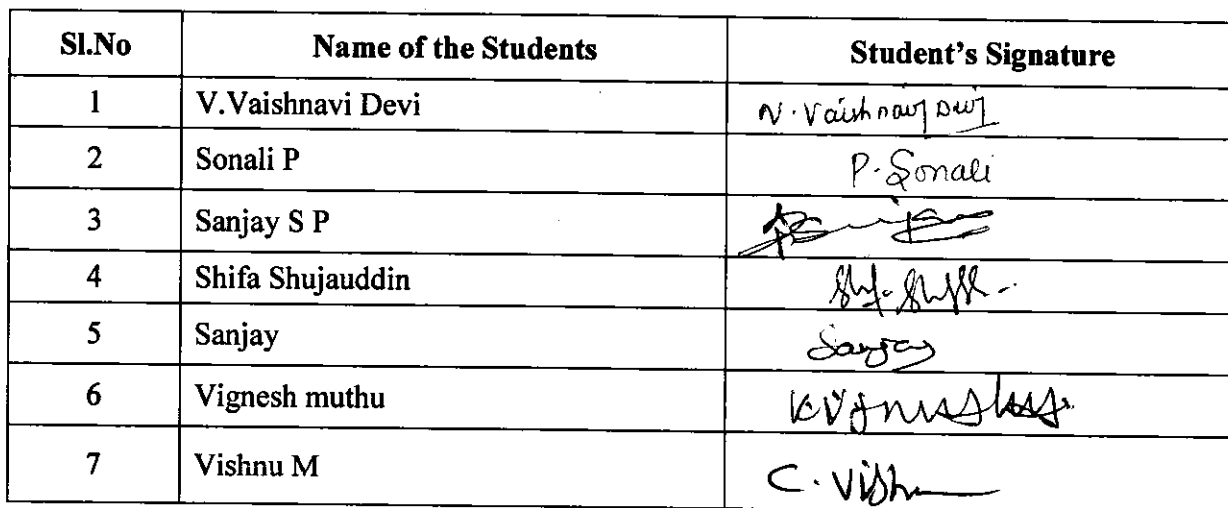 Sl.No Name of the Students Student's Signature
1 V.Vaishnavi Devi N. Vaishnavi Devi
2 Sonali P P. Sonali
3 Sanjay S P
4 Shifa Shujauddin
5 Sanjay Sanjay
6 Vignesh muthu
7 Vishnu M C. Vishnu